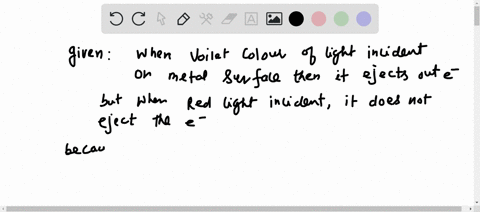 given: When Voilet Colour of light incident
on metal Surface then it ejects out e⁻
but when Red light incident, it does not
eject the e⁻
becau